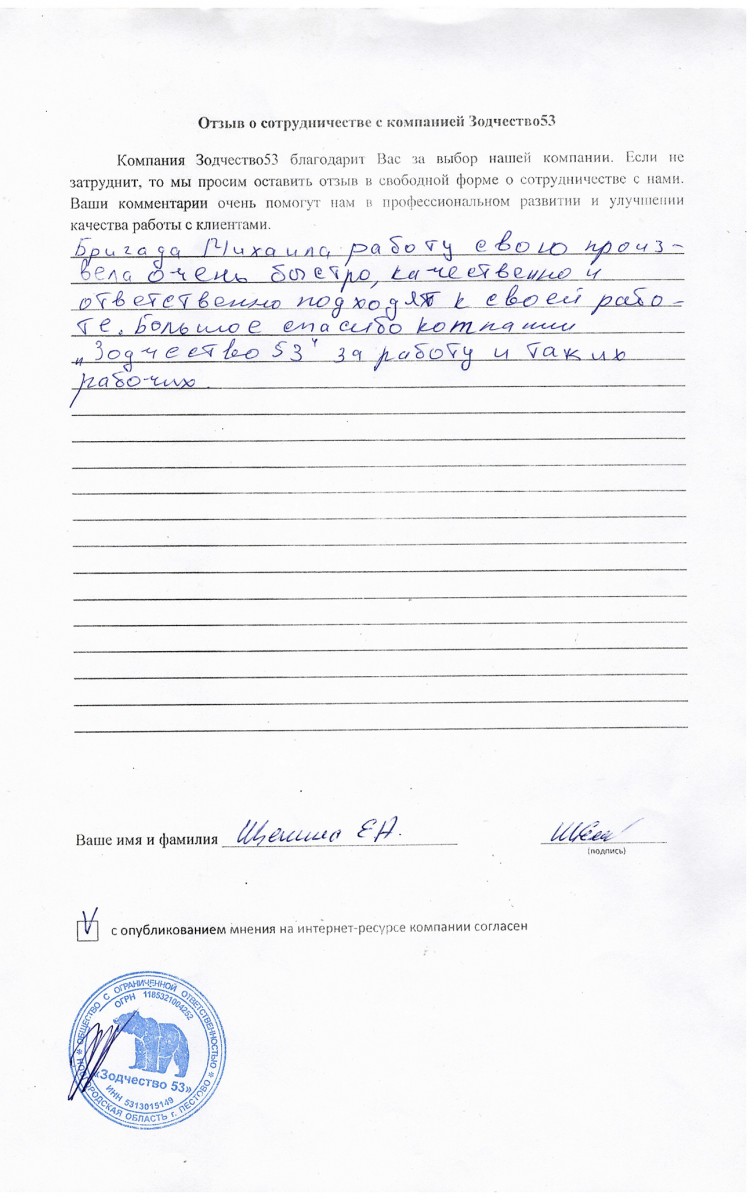 Отзыв о сотрудничестве с компанией Зодчество53
Компания Зодчество53 благодарит Вас за выбор нашей компании. Если не
затруднит, то мы просим оставить отзыв в свободной форме о сотрудничестве с нами.
Ваши комментарии очень помогут нам в профессиональном развитии и улучшении
качества работы с клиентами.
Бригада Михаила работу свою произ-
вела очень быстро, качественно и
ответственно подходят к своей рабо-
те. Большое спасибо компании
„Зодчество 53" за работу и таких
рабочих.
Ваше имя и фамилия Е А.
(подпись)
V с опубликованием мнения на интернет-ресурсе компании согласен
ОБЩЕСТВО С ОГРАНИЧЕННОЙ ОТВЕТСТВЕННОСТЬЮ
ОГРН 1185321004252
«Зодчество 53»
ИНН 5313015149
ГОРОДСКАЯ ОБЛАСТЬ г. ПЕСТОВО